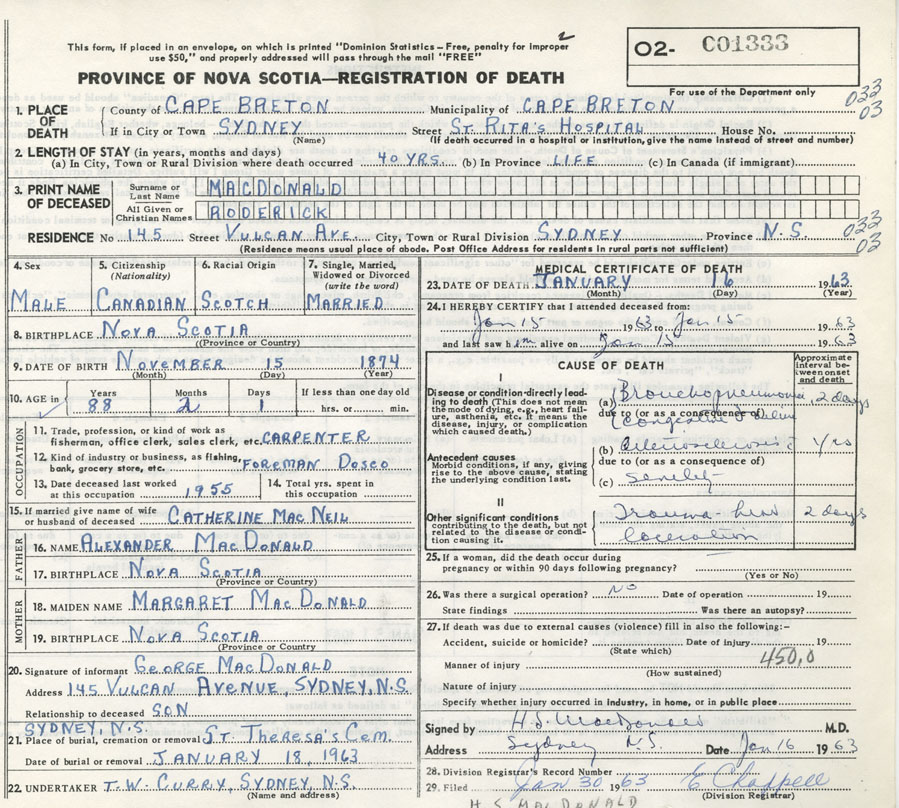 This form, if placed in an envelope, on which is printed "Dominion Statistics—Free, penalty for improper
use $50," and properly addressed will pass through the mail "FREE"
PROVINCE OF NOVA SCOTIA—REGISTRATION OF DEATH
02- C01333
For use of the Department only
033
03
1. PLACE OF DEATH
County of CAPE BRETON Municipality of CAPE BRETON
If in City or Town SYDNEY Street ST. RITA'S HOSPITAL House No.
(Name) (If death occurred in a hospital or institution, give the name instead of street and number)
2. LENGTH OF STAY (in years, months and days)
(a) In City, Town or Rural Division where death occurred 40 YRS. (b) In Province LIFE (c) In Canada (if immigrant)
3. PRINT NAME OF DECEASED
Surname or Last Name MACDONALD
All Given or Christian Names RODERICK
RESIDENCE No 145 Street VULCAN AVE. City, Town or Rural Division SYDNEY Province N.S.
(Residence means usual place of abode. Post Office Address for residents in rural parts not sufficient)
033
03
4. Sex
MALE
5. Citizenship (Nationality)
CANADIAN
6. Racial Origin
SCOTCH
7. Single, Married, Widowed or Divorced (write the word)
MARRIED
8. BIRTHPLACE NOVA SCOTIA
(Province or Country)
9. DATE OF BIRTH NOVEMBER 15 1874
(Month) (Day) (Year)
10. AGE in
Years Months Days If less than one day old
88 2 1 hrs. or min.
OCCUPATION
11. Trade, profession, or kind of work as
fisherman, office clerk, sales clerk, etc. CARPENTER
12. Kind of industry or business, as fishing,
bank, grocery store, etc. FOREMAN DOSCO
13. Date deceased last worked
at this occupation 1955
14. Total yrs. spent in
this occupation
15. If married give name of wife
or husband of deceased CATHERINE MAC NEIL
FATHER
16. NAME ALEXANDER MACDONALD
17. BIRTHPLACE NOVA SCOTIA
(Province or Country)
MOTHER
18. MAIDEN NAME MARGARET MACDONALD
19. BIRTHPLACE NOVA SCOTIA
(Province or Country)
20. Signature of informant GEORGE MACDONALD
Address 145 VULCAN AVENUE, SYDNEY, N.S.
Relationship to deceased SON
SYDNEY, N.S.
21. Place of burial, cremation or removal ST. THERESA'S CEM.
Date of burial or removal JANUARY 18, 1963
22. UNDERTAKER T.W. CURRY, SYDNEY, N.S.
(Name and address)
MEDICAL CERTIFICATE OF DEATH
23. DATE OF DEATH JANUARY 16 1963
(Month) (Day) (Year)
24. I HEREBY CERTIFY that I attended deceased from:
Jan 15 1963 to Jan 15 1963
and last saw him alive on Jan 15 1963
CAUSE OF DEATH
Approximate interval between onset and death
I
Disease or condition directly leading to death (This does not mean the mode of dying, e.g., heart failure, asthenia, etc. It means the disease, injury, or complication which caused death.)
(a) Bronchopneumonia 2 days
due to (or as a consequence of)
Antecedent causes
Morbid conditions, if any, giving rise to the above cause, stating the underlying condition last.
(b) yrs
due to (or as a consequence of)
(c) senility
II
Other significant conditions contributing to the death, but not related to the disease or condition causing it.
Trauma head 2 days
laceration
25. If a woman, did the death occur during
pregnancy or within 90 days following pregnancy?
(Yes or No)
26. Was there a surgical operation? NO Date of operation 19
State findings Was there an autopsy?
27. If death was due to external causes (violence) fill in also the following:-
Accident, suicide or homicide? Date of injury 19
(State which)
450,0
Manner of injury
(How sustained)
Nature of injury
Specify whether injury occurred in industry, in home, or in public place
Signed by H.S. MacDonald M.D.
Address Sydney N.S. Date Jan 16 1963
28. Division Registrar's Record Number
29. Filed Jan 30 1963 E Chappell
(Division Registrar)
H S MACDONALD